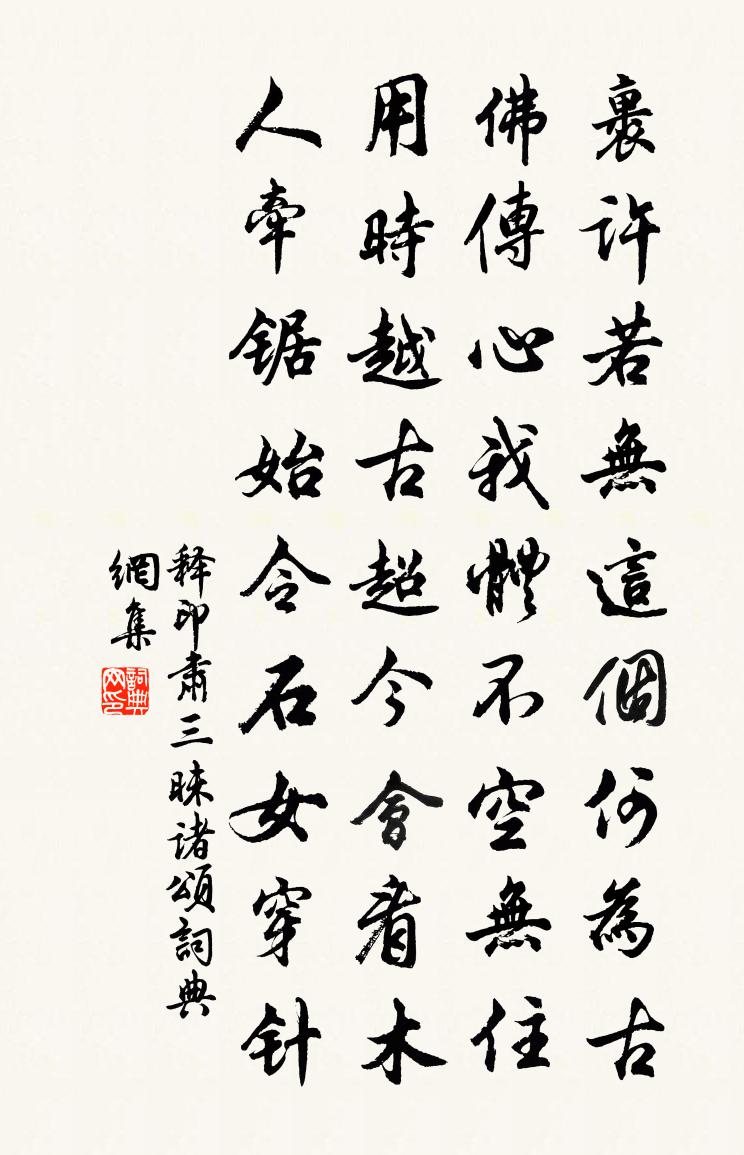 裏許若無這個何為古
佛傳心我體不空無住
用時越古超今會看木
人牽锯始令石女穿针
释印肃三昧诸頌詞典
網集
詞典
网印